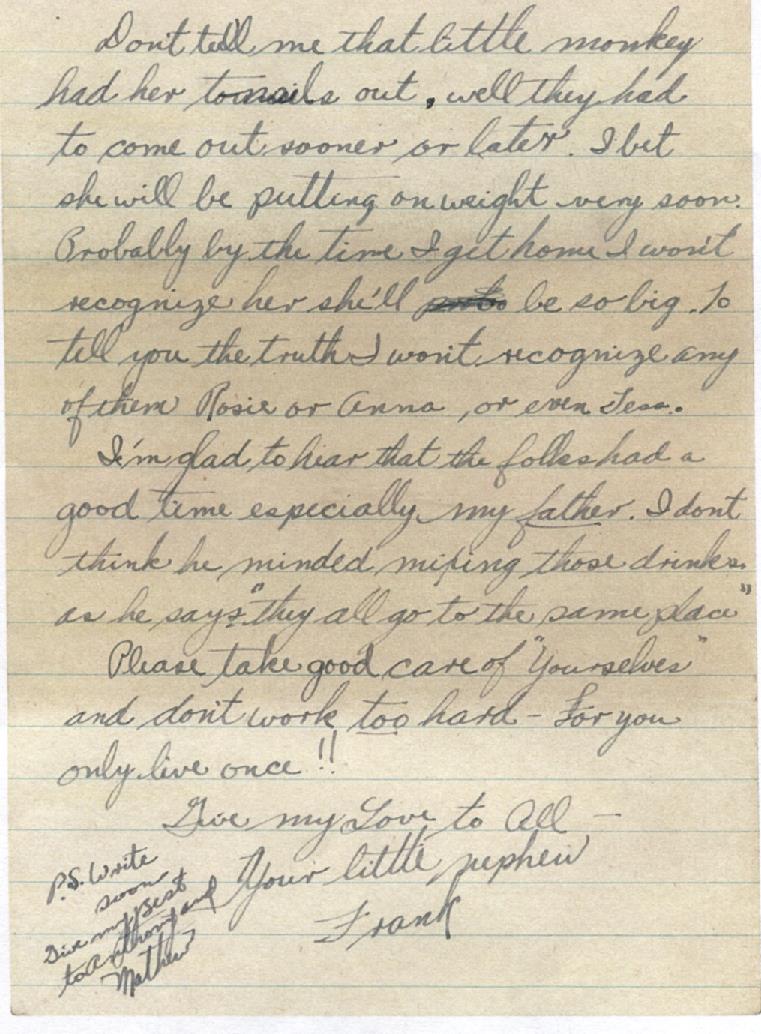 Don't tell me that little monkey
had her tonsils out, well they had
to come out sooner or later. I bet
she will be putting on weight very soon.
Probably by the time I get home I won't
recognize her she'll be so big. To
tell you the truth I won't recognize any
of them Rosie or Anna, or even Tess.
I'm glad to hear that the folks had a
good time especially my father. I dont
think he minded mixing those drinks.
as he says "they all go to the same place"
Please take good care of "Yourselves"
and don't work too hard - For you
only live once!!
Give my Love to All -
Your little nephew
Frank
P.S. Write
soon
Give my Best
to Anthony and
Mathew